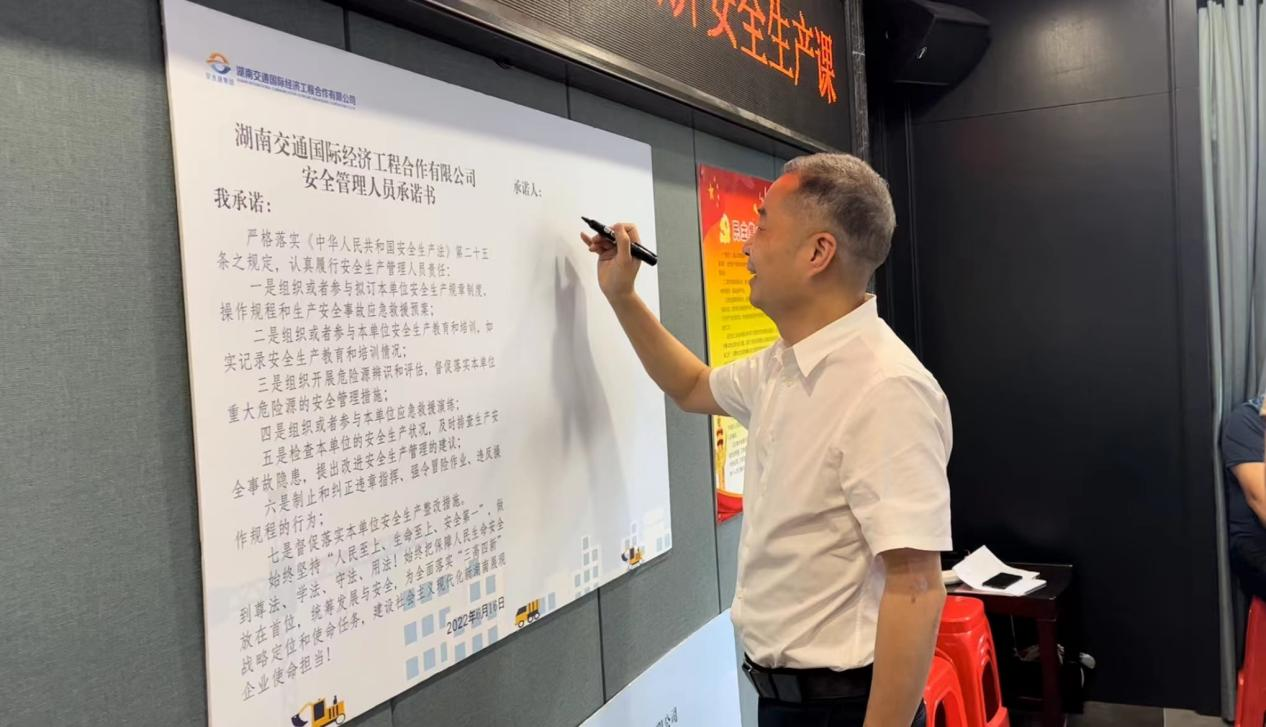 安全生产课
湖南交通国际经济工程合作有限公司
湖南交通国际经济工程合作有限公司
安全管理人员承诺书
承诺人：
我承诺：
严格落实《中华人民共和国安全生产法》第二十五
条之规定，认真履行安全生产管理人员责任：
一是组织或者参与拟订本单位安全生产规章制度、
操作规程和生产安全事故应急救援预案；
二是组织或者参与本单位安全生产教育和培训，如
实记录安全生产教育和培训情况；
三是组织开展危险源辨识和评估，督促落实本单位
重大危险源的安全管理措施；
四是组织或者参与本单位应急救援演练；
五是检查本单位的安全生产状况，及时排查生产安
全事故隐患，提出改进安全生产管理的建议；
六是制止和纠正违章指挥、强令冒险作业、违反操
作规程的行为；
七是督促落实本单位安全生产整改措施。
始终坚持“人民至上、生命至上、安全第一”，做
到尊法、学法、守法、用法！始终把保障人民生命安全
放在首位，统筹发展与安全，为全面落实“三高四新”
战略定位和使命任务，建设社会主义现代化新湖南展现
企业使命担当！
2022年6月16日
限公司